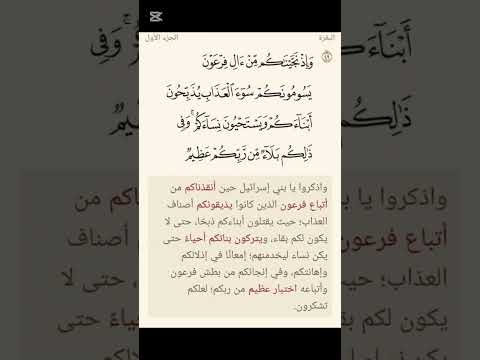 البقرة
الجزء الأول
وَإِذْ نَجَّيْنَٰكُم مِّنْ ءَالِ فِرْعَوْنَ
يَسُومُونَكُمْ سُوٓءَ ٱلْعَذَابِ يُذَبِّحُونَ
أَبْنَآءَكُمْ وَيَسْتَحْيُونَ نِسَآءَكُمْ ۚ وَفِى
ذَٰلِكُم بَلَآءٌ مِّن رَّبِّكُمْ عَظِيمٌ
واذكروا يا بني إسرائيل حين أنقذناكم من
أتباع فرعون الذين كانوا يذيقونكم أصناف
العذاب؛ حيث يقتلون أبناءكم ذبحًا، حتى لا
يكون لكم بقاء، ويتركون بناتكم أحياءً حتى
يكن نساء ليخدمنهم؛ إمعانًا في إذلالكم
وإهانتكم، وفي إنجائكم من بطش فرعون
وأتباعه اختبار عظيم من ربكم؛ لعلكم
تشكرون.